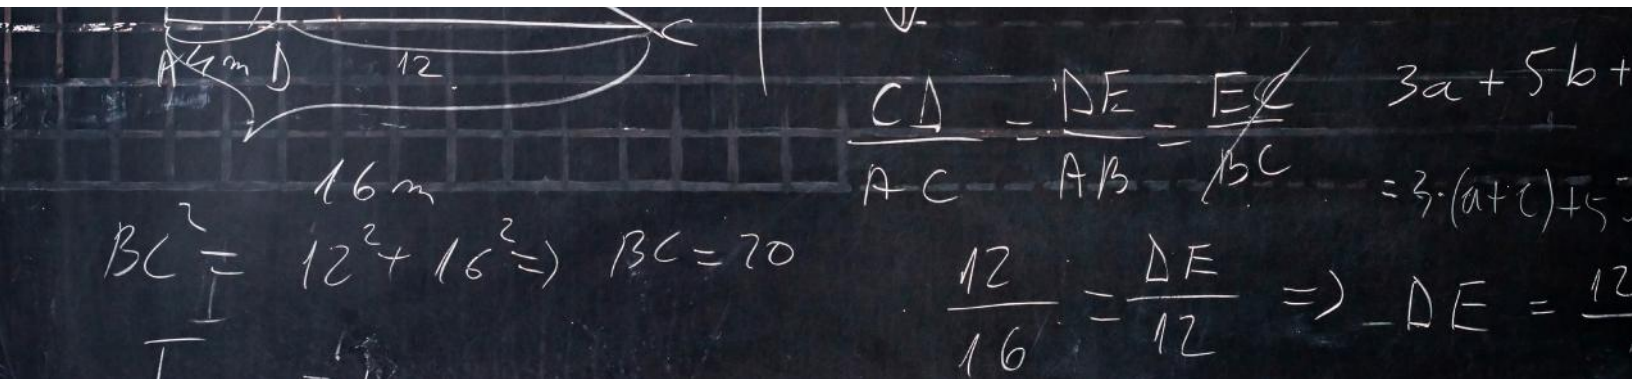 C
A 4 m D 12
16 m
BC² = 12² + 16² => BC = 20
CD/AC = DE/AB = EC/BC
12/16 = DE/12 => DE = 12
3a + 5b +
= 3·(a+c)+5